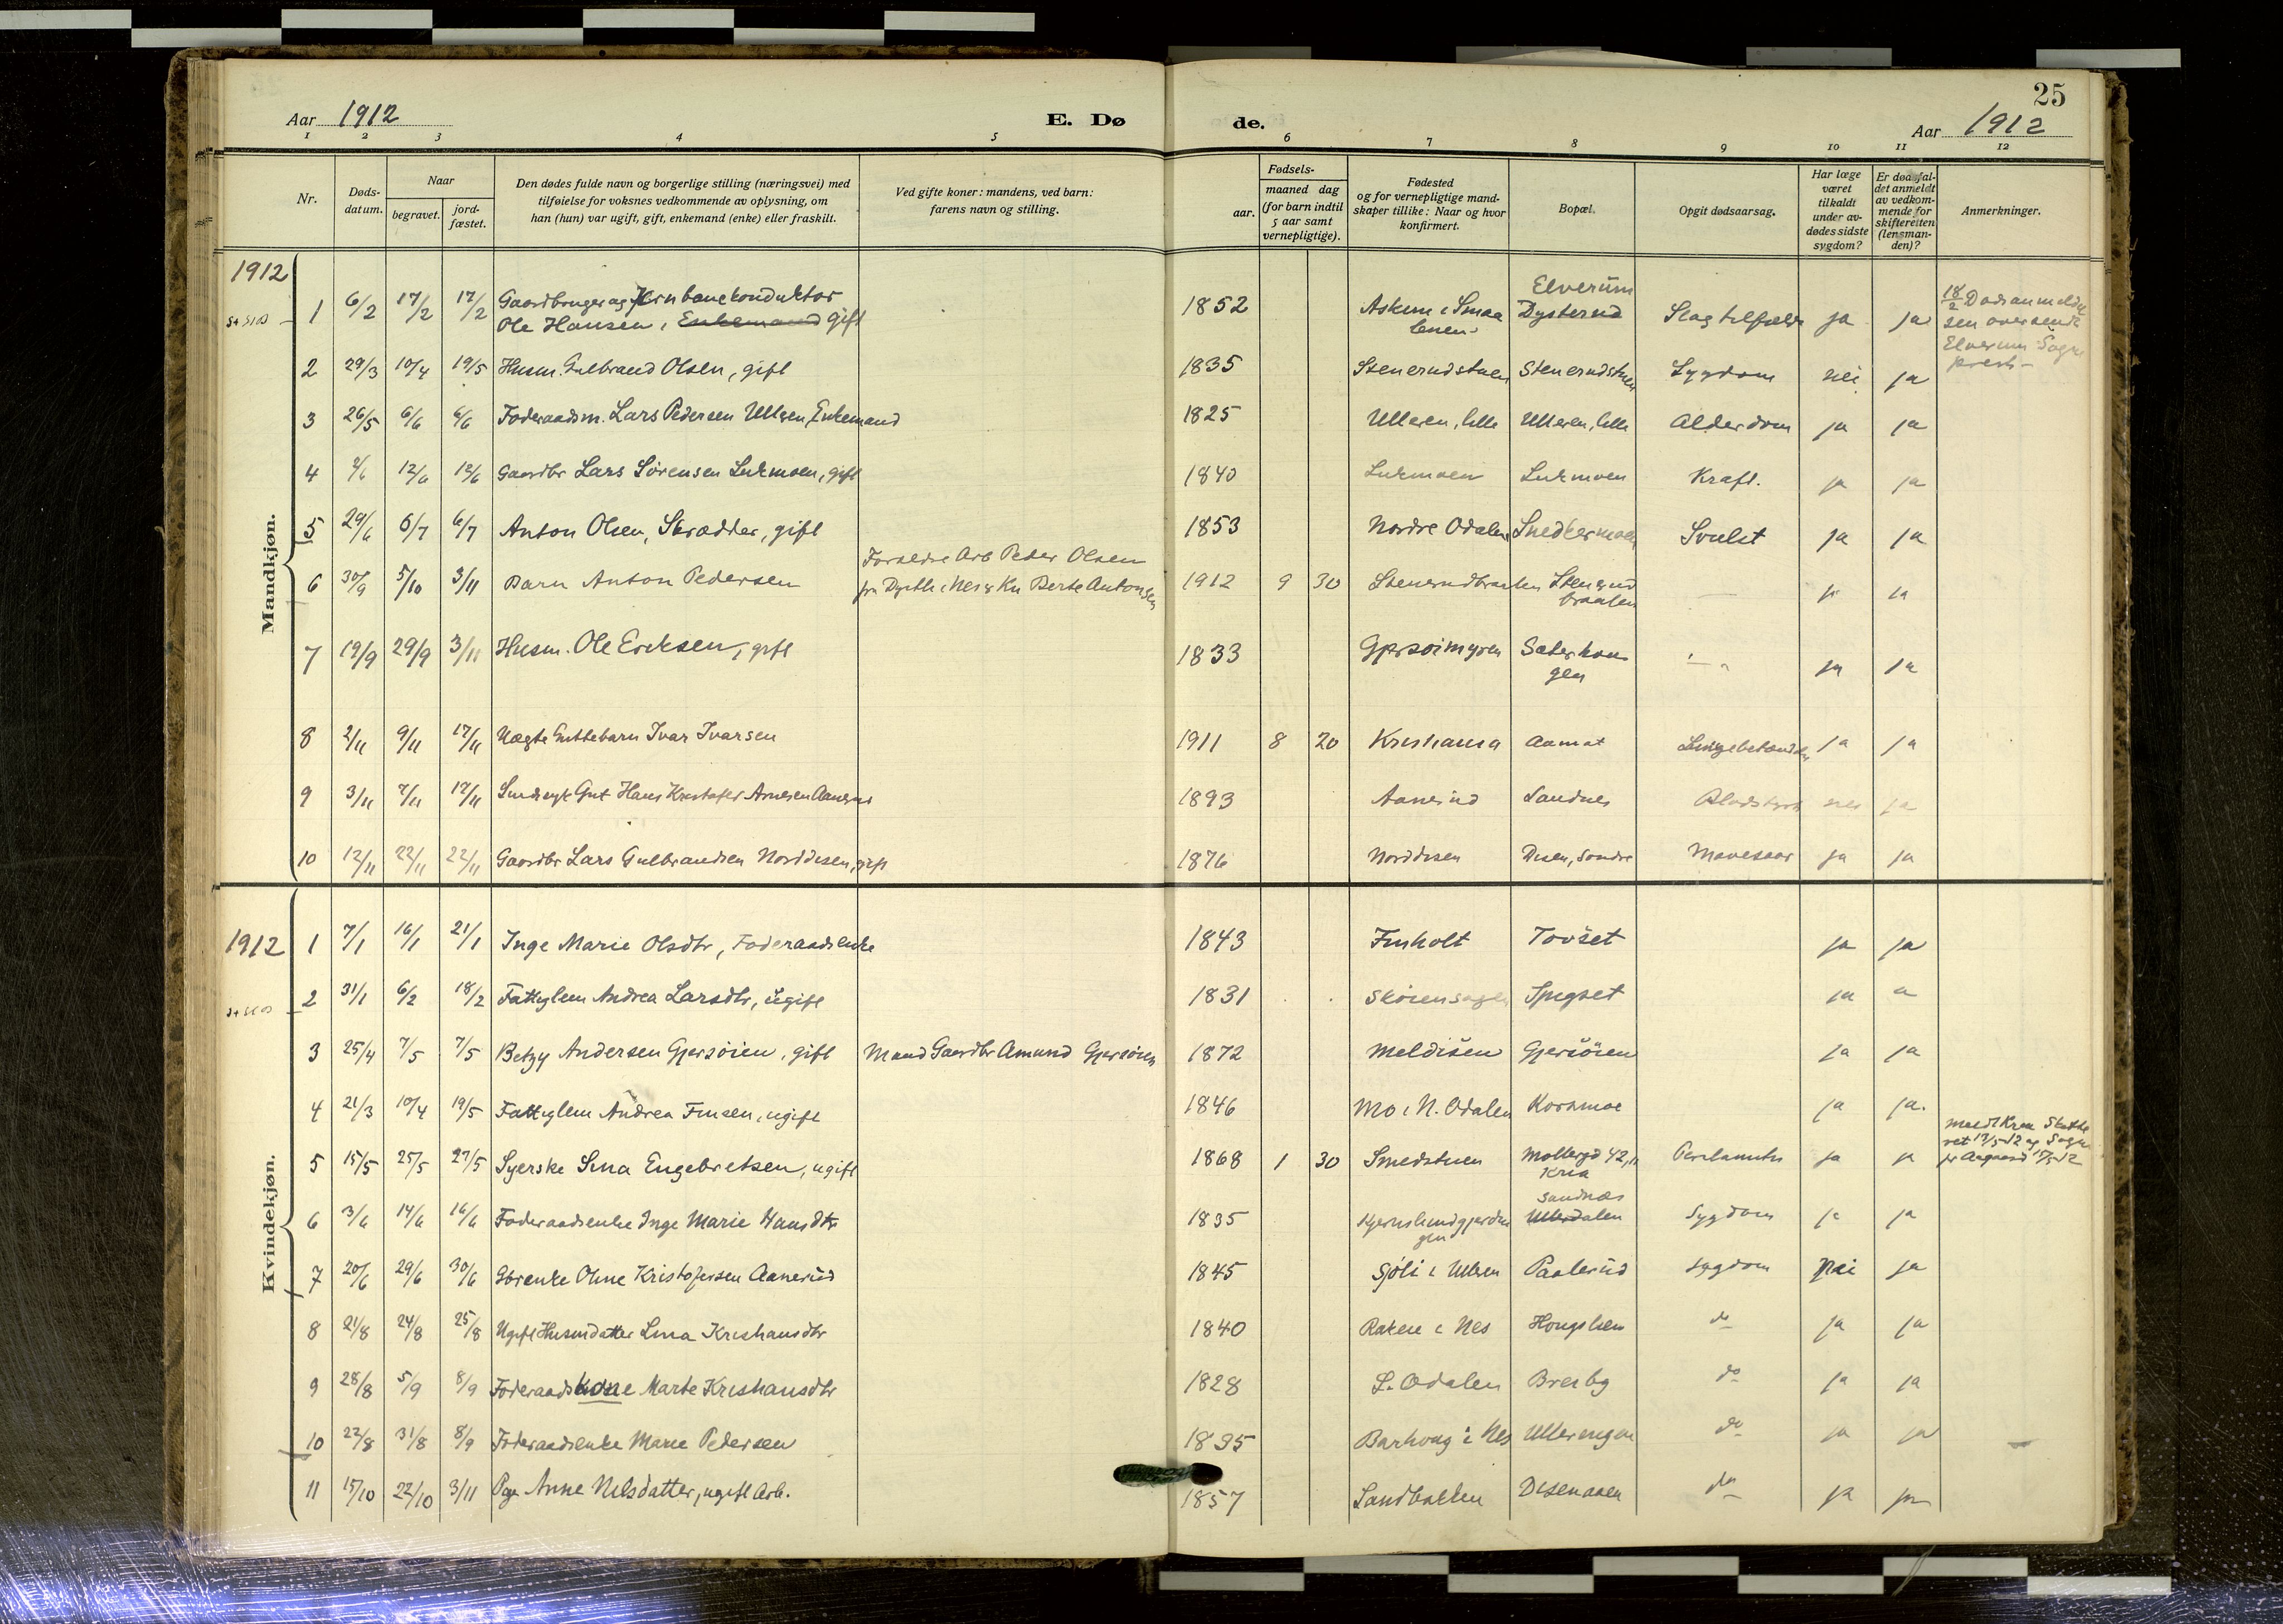 25
Aar 1912
E. Døde.
Aar 1912
1 2 3 4 5 6 7 8 9 10 11 12
Nr.
Døds-datum.
Naar
begravet.
jord-fæstet.
Den dødes fulde navn og borgerlige stilling (næringsvei) med
tilføielse for voksnes vedkommende av oplysning, om
han (hun) var ugift, gift, enkemand (enke) eller fraskilt.
Ved gifte koner: mandens, ved barn:
farens navn og stilling.
Fødsels-
aar.
maaned dag
(for barn indtil
5 aar samt
vernepligtige).
Fødested
og for vernepligtige mand-
skaper tillike: Naar og hvor
konfirmert.
Bopæl.
Opgit dødsaarsag.
Har læge
været
tilkaldt
under av-
dødes sidste
sygdom?
Er dødsfal-
det anmeldt
av vedkom-
mende for
skifteretten
(lensman-
den)?
Anmerkninger.
Mandkjøn.
1912
1 6/2 17/2 17/2 Gaardbruger og Jernbanekonduktør
Ole Hansen, Enkemand gift 1852 Askim i Smaalenene Elverum Dysterud Slagtilfælde ja ja 18/2 Dødsanmeldelsen oversendt Elverum Sogneprest
2 29/3 10/4 19/5 Husm. Gulbrand Olsen, gift 1835 Stenerudstuen Stenerudstuen Sygdom nei ja
3 26/5 6/6 6/6 Foderaadsm. Lars Pedersen Ulleren, Enkemand 1825 Ulleren, lille Ulleren, lille Alderdom ja ja
4 12/6 12/6 Gaardbr Lars Sørensen Lukmoen, gift 1840 Lukmoen Lukmoen Kræft. ja ja
5 29/6 6/7 6/7 Anton Olsen, Skrædder, gift 1853 Nordre Odalen Snedkermoen Svulst ja ja
6 30/9 5/10 3/11 Barn Anton Pedersen Forældre Arb Peder Olsen
fra Dystli i Nes & Kn Berte Antonsen 1912 9 30 Stenerudbraaten Stenerudbraaten — ja ja
7 19/9 29/9 3/11 Husm. Ole Eriksen, gift 1833 Gjersøimyren Sæterhaugen — " ja ja
8 2/11 9/11 17/11 Uægte Guttebarn Ivar Ivarsen 1911 8 20 Kristiania Aamot Lungebetændelse ja ja
9 3/11 7/11 17/11 Sindssyk Gut Hans Kristofer Arnesen Aanerud 1893 Aanerud Sandnes nei ja
10 12/11 22/11 22/11 Gaardbr Lars Gulbrandsen Norddisen, gift 1876 Norddisen Disen, søndre Mavesaar ja ja
Kvindekjøn.
1912
1 7/1 16/1 21/1 Inge Marie Olsdtr, Foderaadsenke 1843 Finholt Tovset ja ja
2 31/1 6/2 18/2 Fattiglem Andrea Larsdtr, ugift 1831 Spigset ja
3 25/4 7/5 7/5 Betzy Andersen Gjersøien, gift Mand Gaardbr Amund Gjersøien 1872 Meldisen Gjersöien ja ja
4 21/3 10/4 19/5 Fattiglem Andrea Finsen, ugift 1846 Mo i N. Odalen Kornmoe ja ja.
5 15/5 25/5 27/5 Syerske Lina Engebretsen, ugift 1868 1 30 Smedstuen Møllergd 42, Kria ja ja
6 3/6 14/6 16/6 Foderaadsenke Inge Marie Hansdtr 1835 Sandnæs Ullerdalen Sygdom ja ja
7 20/6 29/6 30/6 Gbrenke Oline Kristofersen Aanerud 1845 Sjøli i Ulleren Paalerud Sygdom Nei ja
8 21/8 24/8 25/8 Ugift Husmdatter Lina Kristiansdtr 1840 Rakeie i Nes Hongslien do ja ja
9 28/8 5/9 8/9 Foderaadskone Marte Kristiansdtr 1828 S. Odalen Breiby do ja ja
10 22/8 31/8 8/9 Foderaadsenke Marie Pedersen 1835 Barhoug i Nes do ja ja
11 15/10 22/10 3/11 Pge Anne Nilsdatter, ugift Arb. 1857 Sandbakken Disenaaen do ja ja